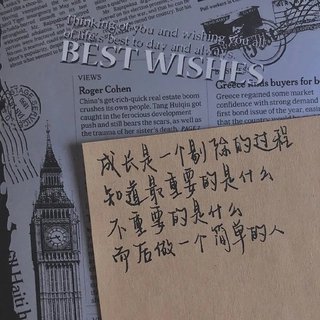 Thinking of you and wishing you all
of life's best to day and always.
BEST WISHES
VIEWS
Roger Cohen
China's get-rich-quick real estate boom
crushes its own people. Tang Huiqin got
caught in the ferocious development
push and still bears the scars, as well as
the trauma of her sister's death. PAGE
Greece finds buyers for b
Greece regained some market
confidence with strong demand
first bond issue of
成长是一个剔除的过程
知道最重要的是什么
不重要的是什么
而后做一个简单的人